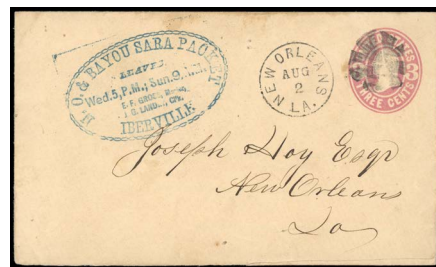 N. O. & BAYOU SARA PACKET
LEAVES
Wed. 5, P.M., Sun. 9,
IBERVILLE
NEW ORLEANS
AUG
2
LA.
THREE CENTS
3
Joseph Hoy Esqr
New Orleans
La